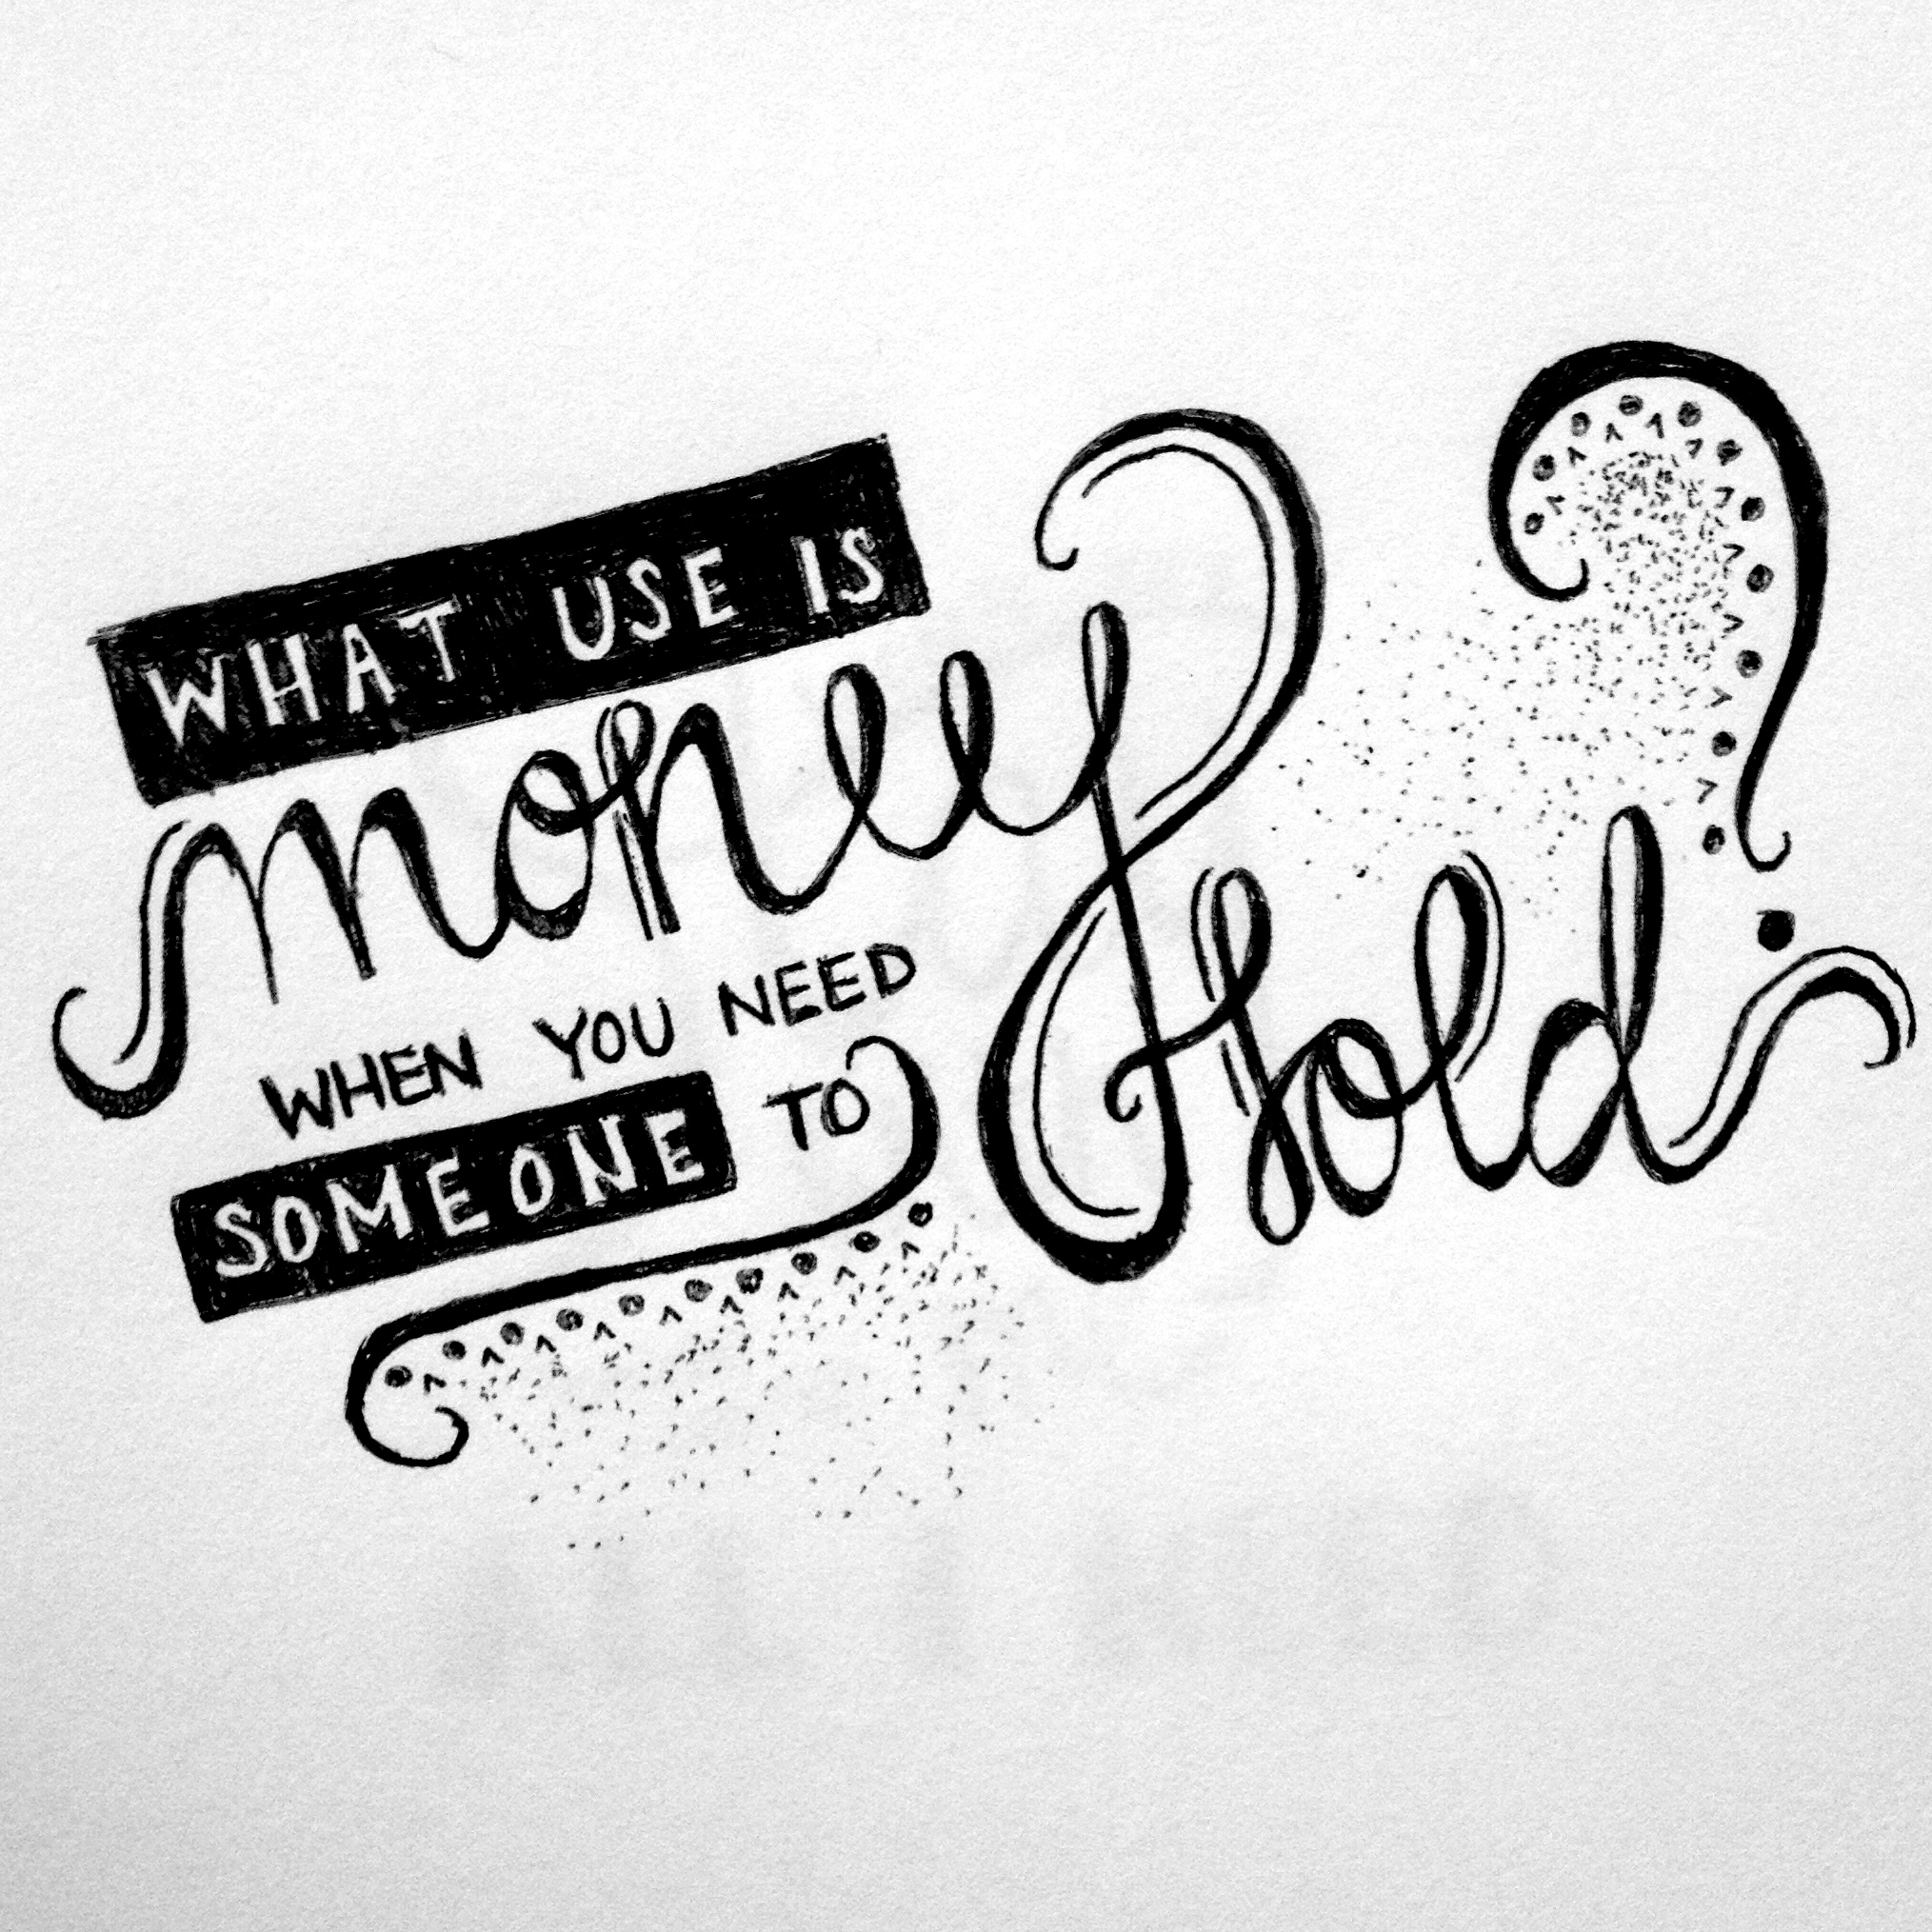 WHAT USE IS
money
WHEN YOU NEED
SOMEONE TO
Hold?